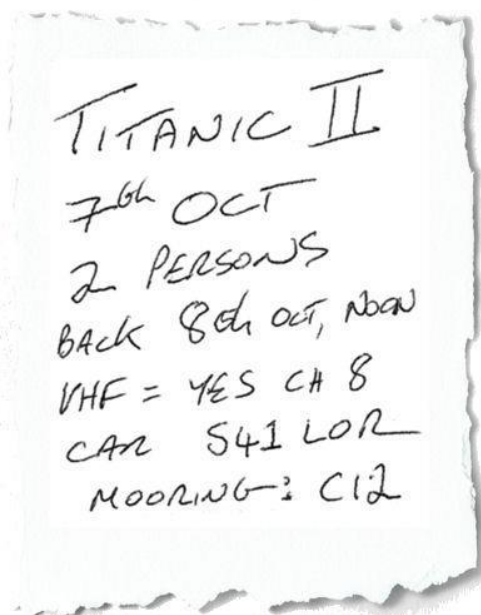 TITANIC II
7th OCT
2 PERSONS
BACK 8th OCT, NOON
VHF = YES CH 8
CAR S41 LOR
MOORING: C12